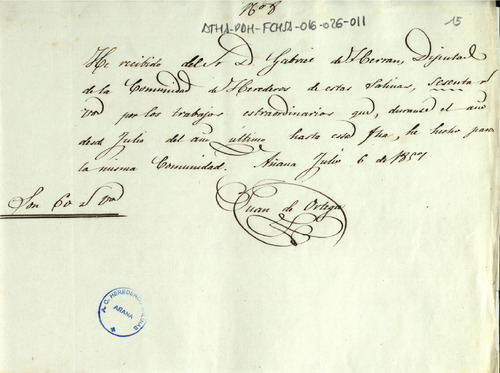 Nº 8
ATHA-DAH-FCHSA-016-026-011
15
He recibido del Sr D Gabriel de Herran, Diputado
de la Comunidad de Herederos de estas Salinas, sesenta rs
Von por los trabajos estraordinarios que, durante el año
desde Julio del año ultimo hasta esta fha, he hecho para
la misma Comunidad. Añana Julio 6 de 1857
Juan de Ortega
Son 60 rs Von
A.C. HEREDEROS
AÑANA